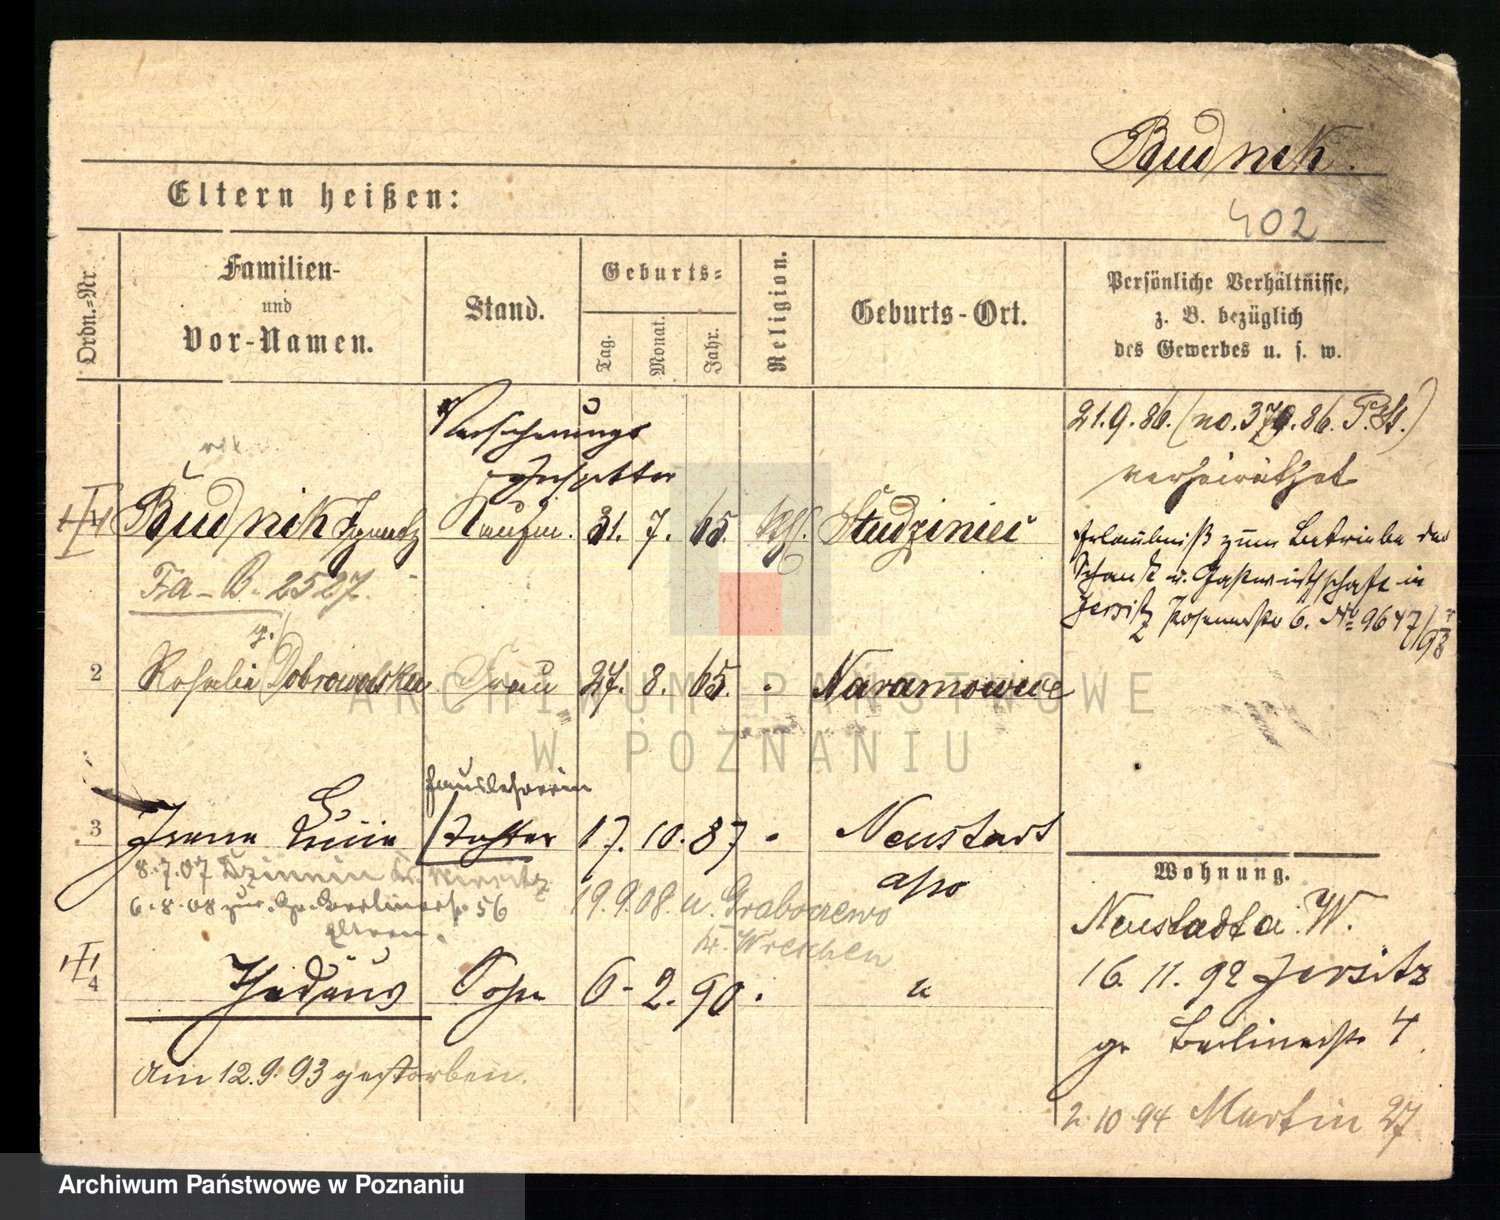 Budnik.
Eltern heißen:
402
Ordn.=Nr.
Familien-
und
Vor-Namen.
Stand.
Geburts=
Tag.
Monat.
Jahr.
Religion.
Geburts-Ort.
Persönliche Verhältnisse,
z. B. bezüglich
des Gewerbes u. s. w.
Versicherungs
Inspektor
21.9.86. (no. 379.86. P.St.)
verheirathet
Budnik Ignatz Kaufm. 31. 7. 65. kth. Studziniec
Fa-B. 2527.
Erlaubniß zum Betriebe der
Schank u. Gastwirthschaft in
Jersitz Posenerstr 6. No 9647/93
2 Rosalie g. Dobrowolska Frau 27. 8. 65. Naramowice
Hauslehrerin
3 Irene Lucie Tochter 17. 10. 87 Neustadt
a/W
8.7.07
6.8.08 zur. Gr. Berlinerstr. 56
Eltern.
19.9.08. n. Grabowo
Kr. Wreschen
4 Thadäus Sohn 6. 2. 90. "
Am 12.9.93 gestorben.
Wohnung.
Neustadt a. W.
16. 11. 92 Jersitz
gr Berlinerstr. 4.
2.10.94 Martin 27
ARCHIWUM PAŃSTWOWE
W POZNANIU
Archiwum Państwowe w Poznaniu